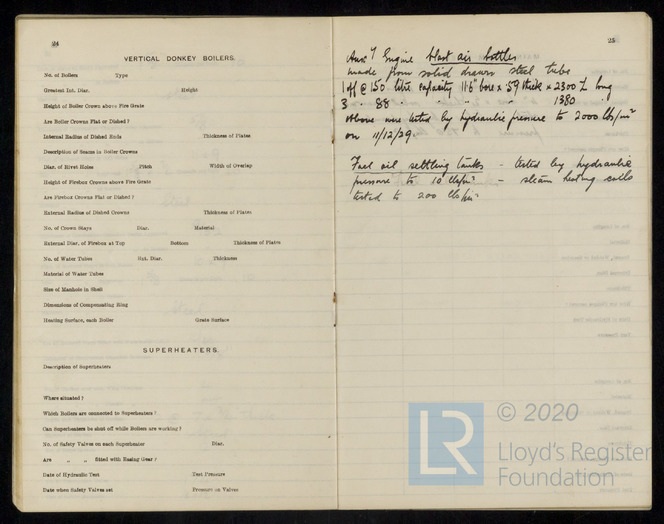 24
VERTICAL DONKEY BOILERS.
No. of Boilers Type
Greatest Int. Diar. Height
Height of Boiler Crown above Fire Grate
Are Boiler Crowns Flat or Dished?
Internal Radius of Dished Ends Thickness of Plates
Description of Seams in Boiler Crowns
Diar. of Rivet Holes Pitch Width of Overlap
Height of Firebox Crowns above Fire Grate
Are Firebox Crowns Flat or Dished?
External Radius of Dished Crowns Thickness of Plates
No. of Crown Stays Diar. Material
External Diar. of Firebox at Top Bottom Thickness of Plates
No. of Water Tubes Ext. Diar. Thickness
Material of Water Tubes
Size of Manhole in Shell
Dimensions of Compensating Ring
Heating Surface, each Boiler Grate Surface
SUPERHEATERS.
Description of Superheaters
Where situated?
Which Boilers are connected to Superheaters?
Can Superheaters be shut off while Boilers are working?
No. of Safety Valves on each Superheater Diar.
Are „ „ fitted with Easing Gear?
Date of Hydraulic Test Test Pressure
Date when Safety Valves set Pressure on Valves
25
Auxy Engine blast air bottles
made from solid drawn steel tube
1 off @ 150 litre capacity 11.6" bore x .59 thick x 2300 long
3 " 88 " " " " 1380
above were tested by hydraulic pressure to 2000 lbs/in²
on 11/12/29.
Fuel oil settling tanks - tested by hydraulic
pressure to 10 lbs/in² - steam heating coils
tested to 200 lbs/in²
LR
© 2020
Lloyd's Register
Foundation